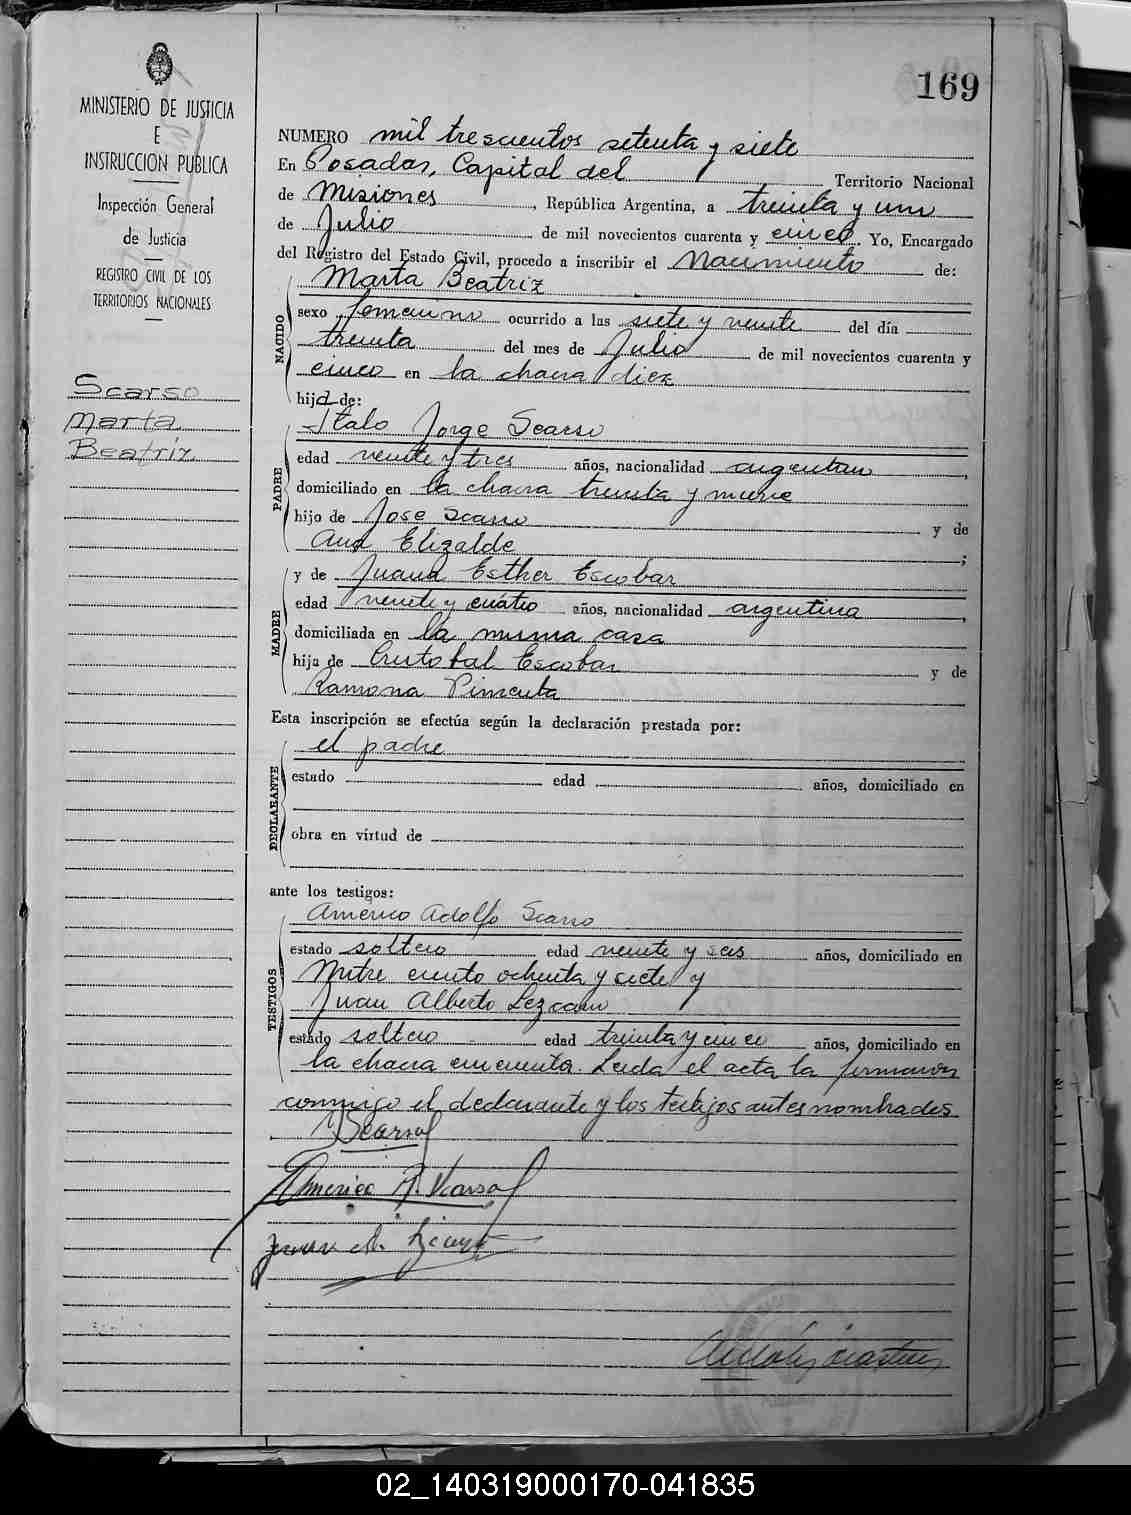 169
MINISTERIO DE JUSTICIA
E
INSTRUCCION PUBLICA
Inspección General
de Justicia
REGISTRO CIVIL DE LOS
TERRITORIOS NACIONALES
Scarso
Marta
Beatriz
NUMERO mil trescientos setenta y siete
En Posadas, Capital del Territorio Nacional
de Misiones, República Argentina, a treinta y uno
de Julio de mil novecientos cuarenta y cinco. Yo, Encargado
del Registro del Estado Civil, procedo a inscribir el Nacimiento de:
NACIDO
Marta Beatriz
sexo femenino ocurrido a las siete y veinte del día
treinta del mes de Julio de mil novecientos cuarenta y
cinco en la chacra diez
hija de:
PADRE
Italo Jorge Scarso
edad veinte y tres años, nacionalidad argentino,
domiciliado en la chacra treinta y nueve
hijo de Jose Scarso y de
Ana Elizalde;
MADRE
y de Juana Esther Escobar
edad veinte y cuatro años, nacionalidad argentina,
domiciliada en la misma casa
hija de Cristobal Escobar y de
Ramona Pimenta
Esta inscripción se efectúa según la declaración prestada por:
DECLARANTE
el padre
estado edad años, domiciliado en
obra en virtud de
ante los testigos:
TESTIGOS
Americo Adolfo Scarso
estado soltero edad veinte y seis años, domiciliado en
Mitre ciento ochenta y siete y
Juan Alberto Lezcano
estado soltero edad treinta y cinco años, domiciliado en
la chacra cincuenta. Leida el acta la firmaron
conmigo el declarante y los testigos antes nombrados
Scarso
Americo A. Scarso
Juan A.
02_140319000170-041835